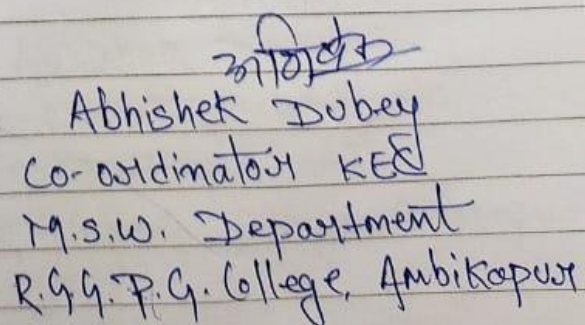 अभिषेक
Abhishek Dubey
Co-ordinator
M.S.W. Department
R.G.G.P.G. College, Ambikapur